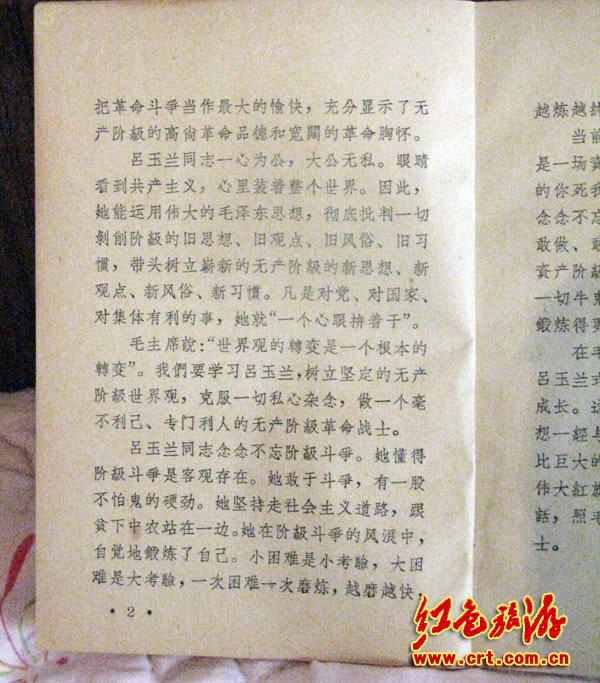 把革命斗爭当作最大的愉快，充分显示了无
产阶級的高尙革命品德和宽闊的革命胸怀。
吕玉兰同志一心为公，大公无私。眼睛
看到共产主义，心里装着整个世界。因此，
她能运用伟大的毛泽东思想，彻底批判一切
剝削阶級的旧思想、旧观点、旧风俗、旧习
慣，带头树立嶄新的无产阶級的新思想、新
观点、新风俗、新习慣。凡是对党、对国家、
对集体有利的事，她就“一个心眼拚着干”。
毛主席說：“世界观的轉变是一个根本的
轉变”。我們要学习吕玉兰，树立坚定的无产
阶級世界观，克服一切私心杂念，做一个毫
不利己、专门利人的无产阶級革命战士。
吕玉兰同志念念不忘阶級斗爭。她懂得
阶級斗爭是客观存在。她敢于斗爭，有一股
不怕鬼的硬劲。她坚持走社会主义道路，跟
貧下中农站在一边。她在阶級斗爭的风浪中，
自覚地鍛炼了自己。小困难是小考驗，大困
难是大考驗，一次困难一次磨炼，越磨越快，
• 2 •
越炼越
当前
是一场資
的你死我
念念不忘
敢做、敢
資产阶級
一切牛鬼
鍛炼得更
在毛
吕玉兰式
成长。
想一經与
比巨大的
伟大紅旗
話，照毛
士。
红色旅游
www.crt.com.cn